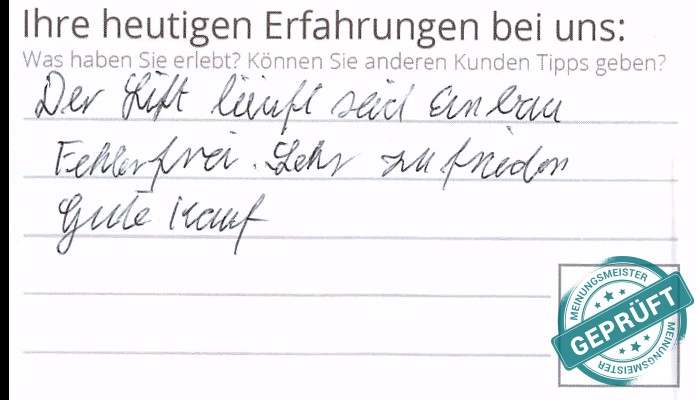 Ihre heutigen Erfahrungen bei uns:
Was haben Sie erlebt? Können Sie anderen Kunden Tipps geben?
Der Lift läuft seid Einbau
Fehlerfrei. Sehr zufrieden
Gute Kauf
MEINUNGSMEISTER
GEPRÜFT
MEINUNGSMEISTER